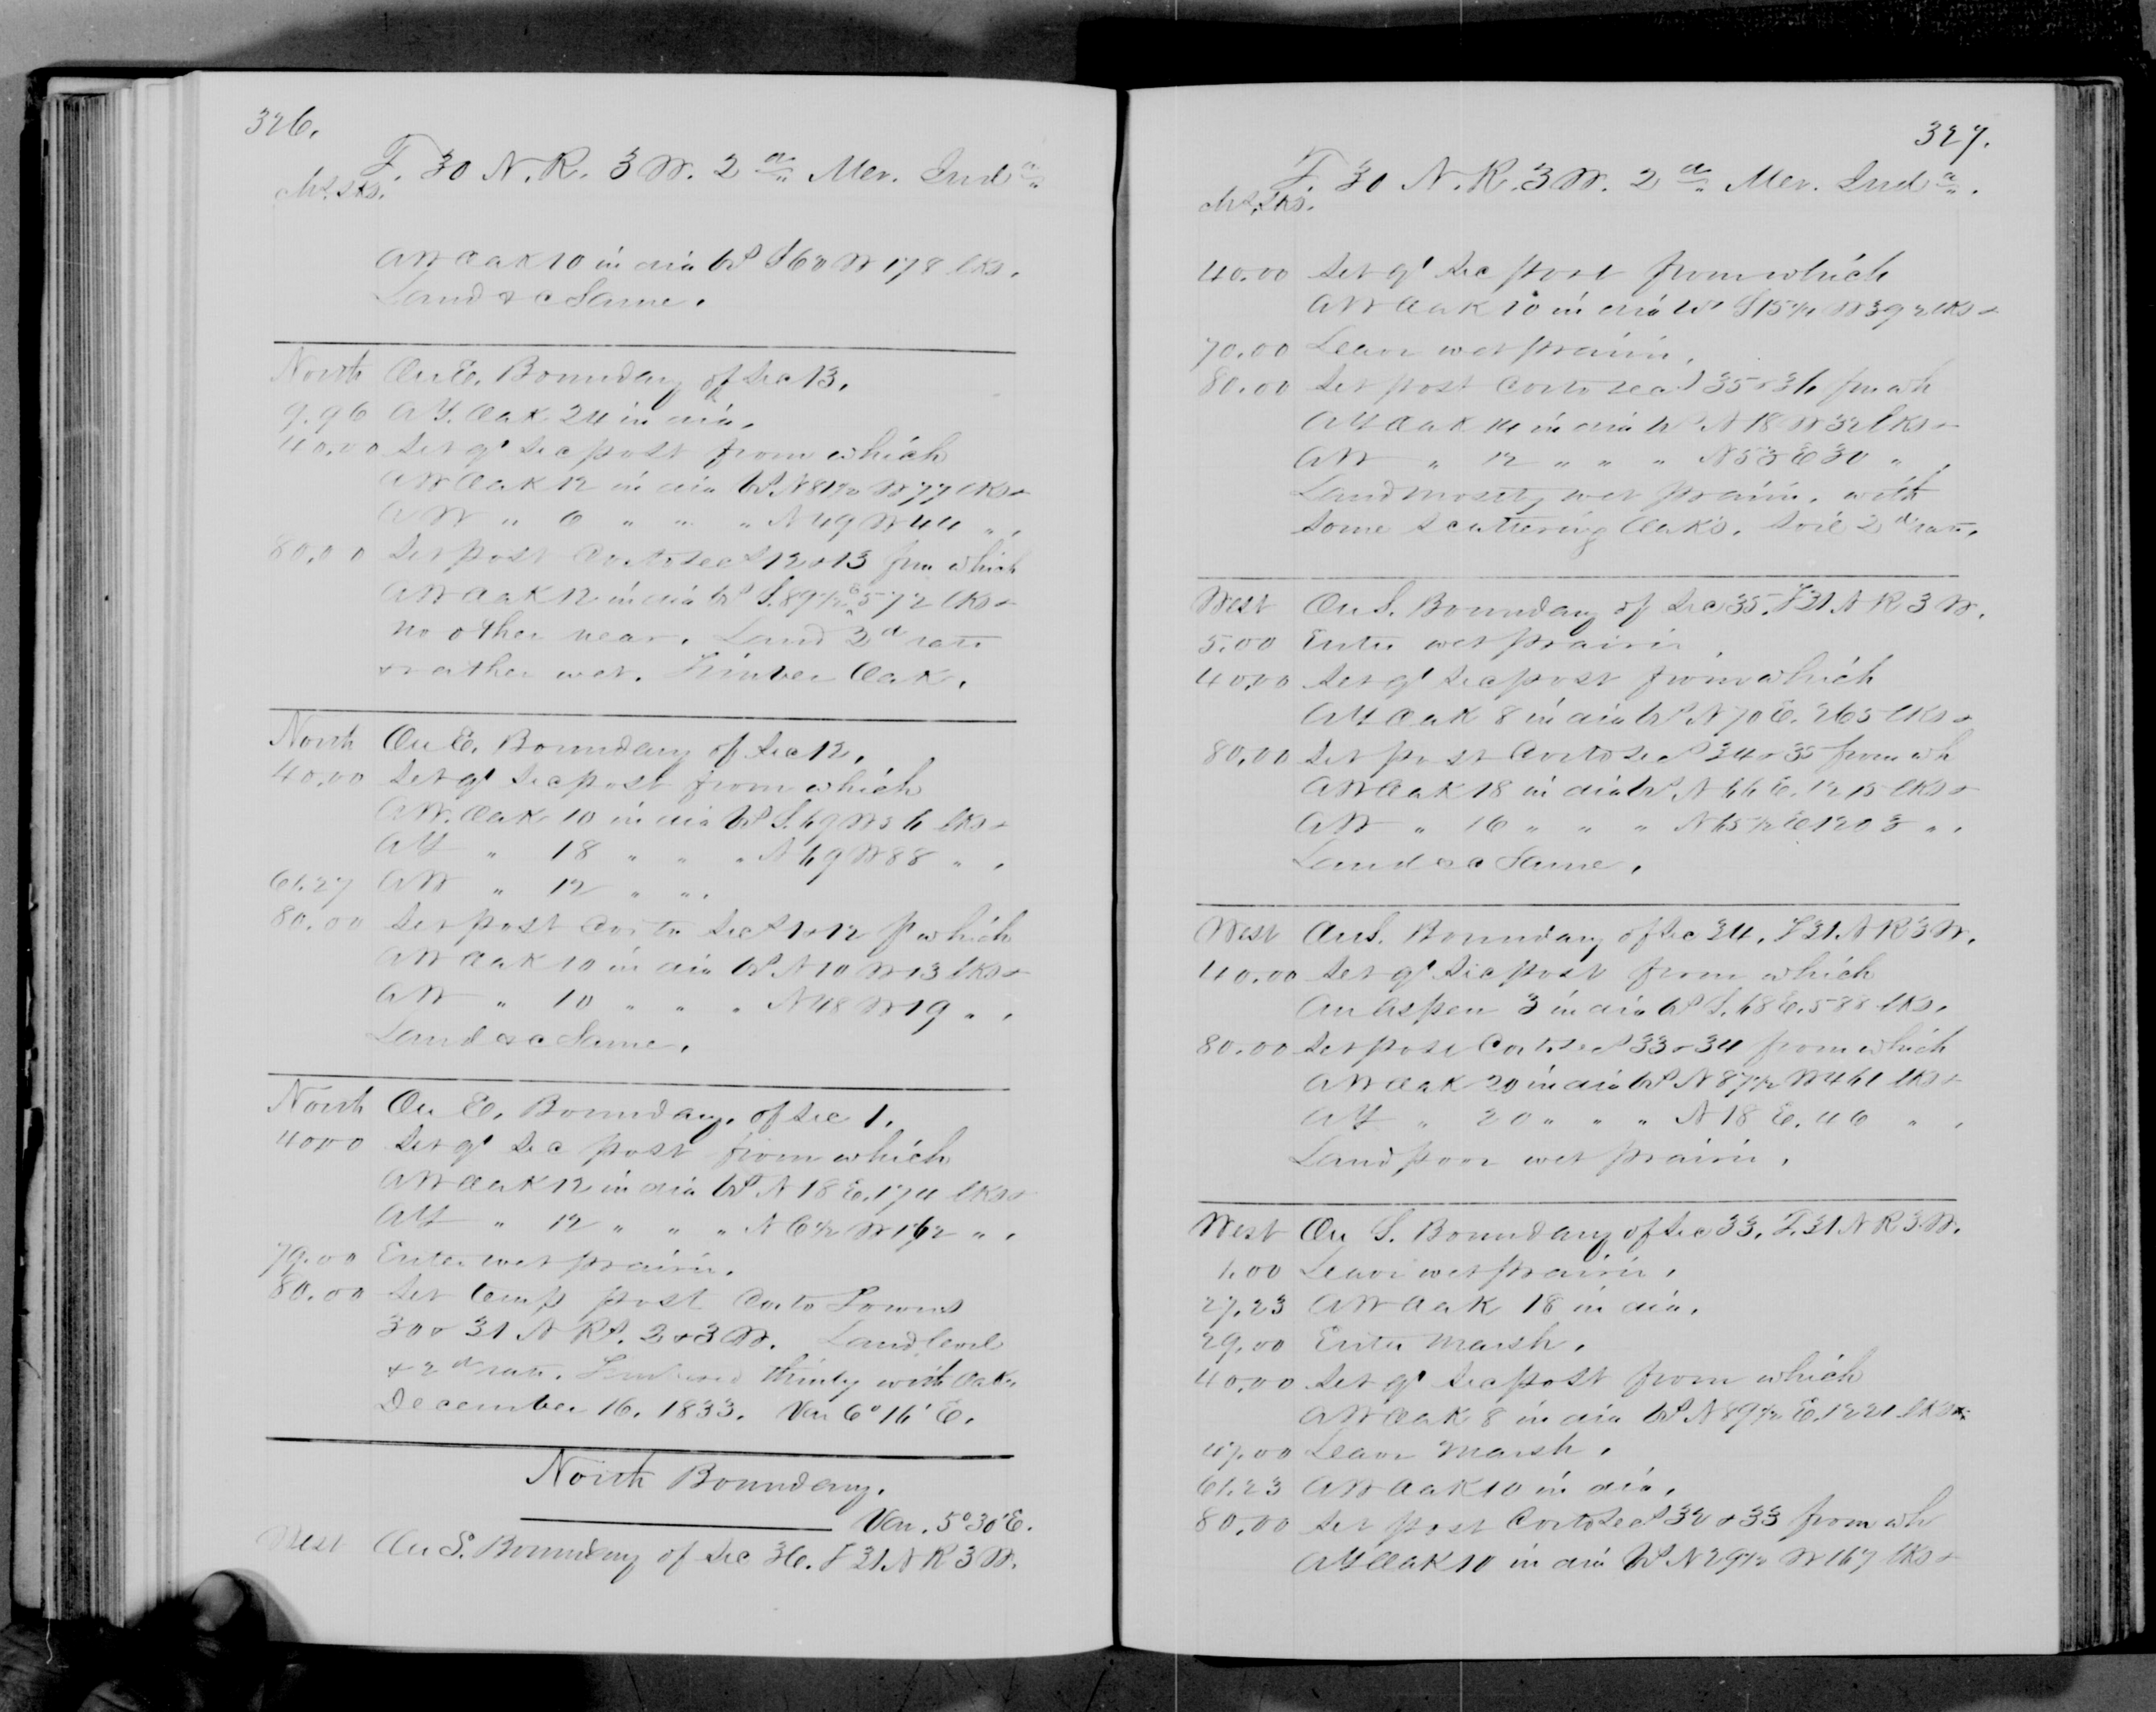 326.
T. 30 N. R. 3 W. 2d Mer. Inda
Chs. Lks.
A W Oak 10 in dia brs S 60 W 178 lks.
Land &c Same.
North On E. Boundary of Sec 13.
9.96 A Y. Oak 24 in dia.
40.00 Set qr Sec post from which
A W Oak 12 in dia brs N 81½ W 77 lks &
A W " 6 " " " N 49 W 44 " .
80.00 Set post Cor to secs 12 & 13 fm which
A W Oak 12 in dia brs S. 89½ E 572 lks &
no other near. Land 2d rate
& rather wet. Timber Oak.
North On E. Boundary of Sec 12.
40.00 Set qr Sec post from which
A W. Oak 10 in dia brs S. 69 W 56 lks &
A Y " 18 " " " N 69 W 88 " .
61.27 A W " 12 " " .
80.00 Set post Cor to Secs 1 & 12 f which
A W Oak 10 in dia brs N 10 W 13 lks &
A W " 10 " " " N 48 W 19 " .
Land &c Same.
North On E. Boundary. of Sec 1.
40.00 Set qr Sec post from which
A W Oak 12 in dia brs N 18 E. 174 lks &
A Y " 12 " " " N 6½ W 162 " .
79.00 Enter wet prairie.
80.00 Set temp post Cor to Towns
30 & 31 N Rs. 2 & 3 W. Land level
& 2d rate. Timbered thinly with Oak.
December 16. 1833. Var 6° 16' E.
North Boundary.
Var. 5° 30' E.
West On S. Boundary of Sec 36. T 31 N R 3 W.
327.
T. 30 N. R. 3 W. 2d Mer. Inda.
Chs. Lks.
40.00 Set qr Sec post from which
A W Oak 10 in dia brs S 15½ W 392 lks &
70.00 Leave wet prairie.
80.00 Set post Cor to secs 35 & 36 fm wh
A Y Oak 14 in dia brs N 18 W 32 lks &
A W " 12 " " " N 53 E 30 " .
Land mostly wet prairie. with
some scattering Oaks. Soil 2d rate.
West On S. Boundary of Sec 35. T 31 N R 3 W.
5.00 Enter wet prairie
40.00 Set qr Sec post from which
A Y Oak 8 in dia brs N 70 E. 265 lks &
80.00 Set post Cor to Secs 34 & 35 from wh
A W Oak 18 in dia brs N 66 E. 1215 lks &
A W " 16 " " " N 65½ E 1203 " .
Land &c Same.
West On S. Boundary of Sec 34. T 31 N R 3 W.
40.00 Set qr Sec post from which
An Aspen 3 in dia brs S. 68 E. 588 lks.
80.00 Set post Cor to Secs 33 & 34 from which
A W Oak 20 in dia brs N 87½ W 461 lks &
A Y " 20 " " " N 18 E. 46 " .
Land poor wet prairie.
West On S. Boundary of Sec 33. T. 31 N R 3 W.
1.00 Leave wet prairie.
27.23 A W Oak 18 in dia.
29.00 Enter Marsh.
40.00 Set qr Sec post from which
A W Oak 8 in dia brs N 89½ E. 1221 lks &
47.00 Leave Marsh.
61.23 A W Oak 10 in dia.
80.00 Set post Cor to Secs 32 & 33 from wh
A Y Oak 10 in dia brs N 29½ W 167 lks &